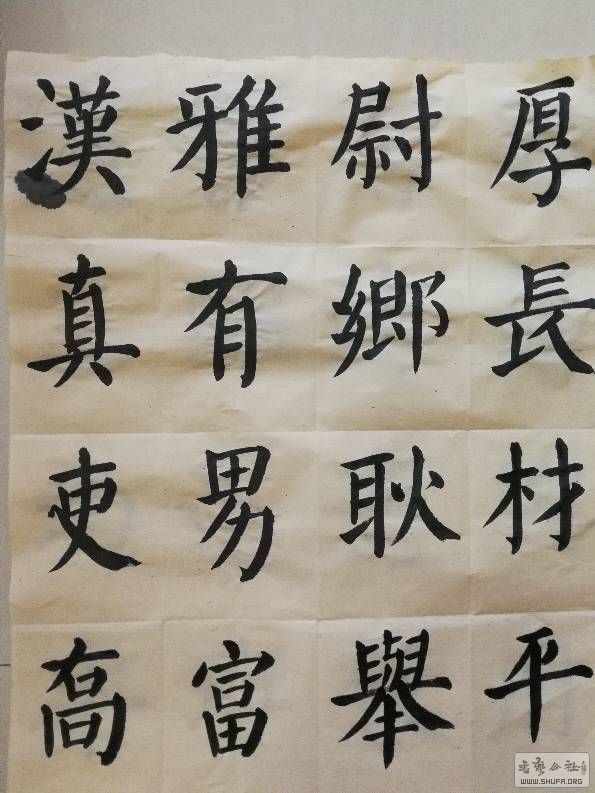 厚長材平
尉鄉耿舉
雅有男富
漢真吏喬
书艺公社
WWW.SHUFA.ORG